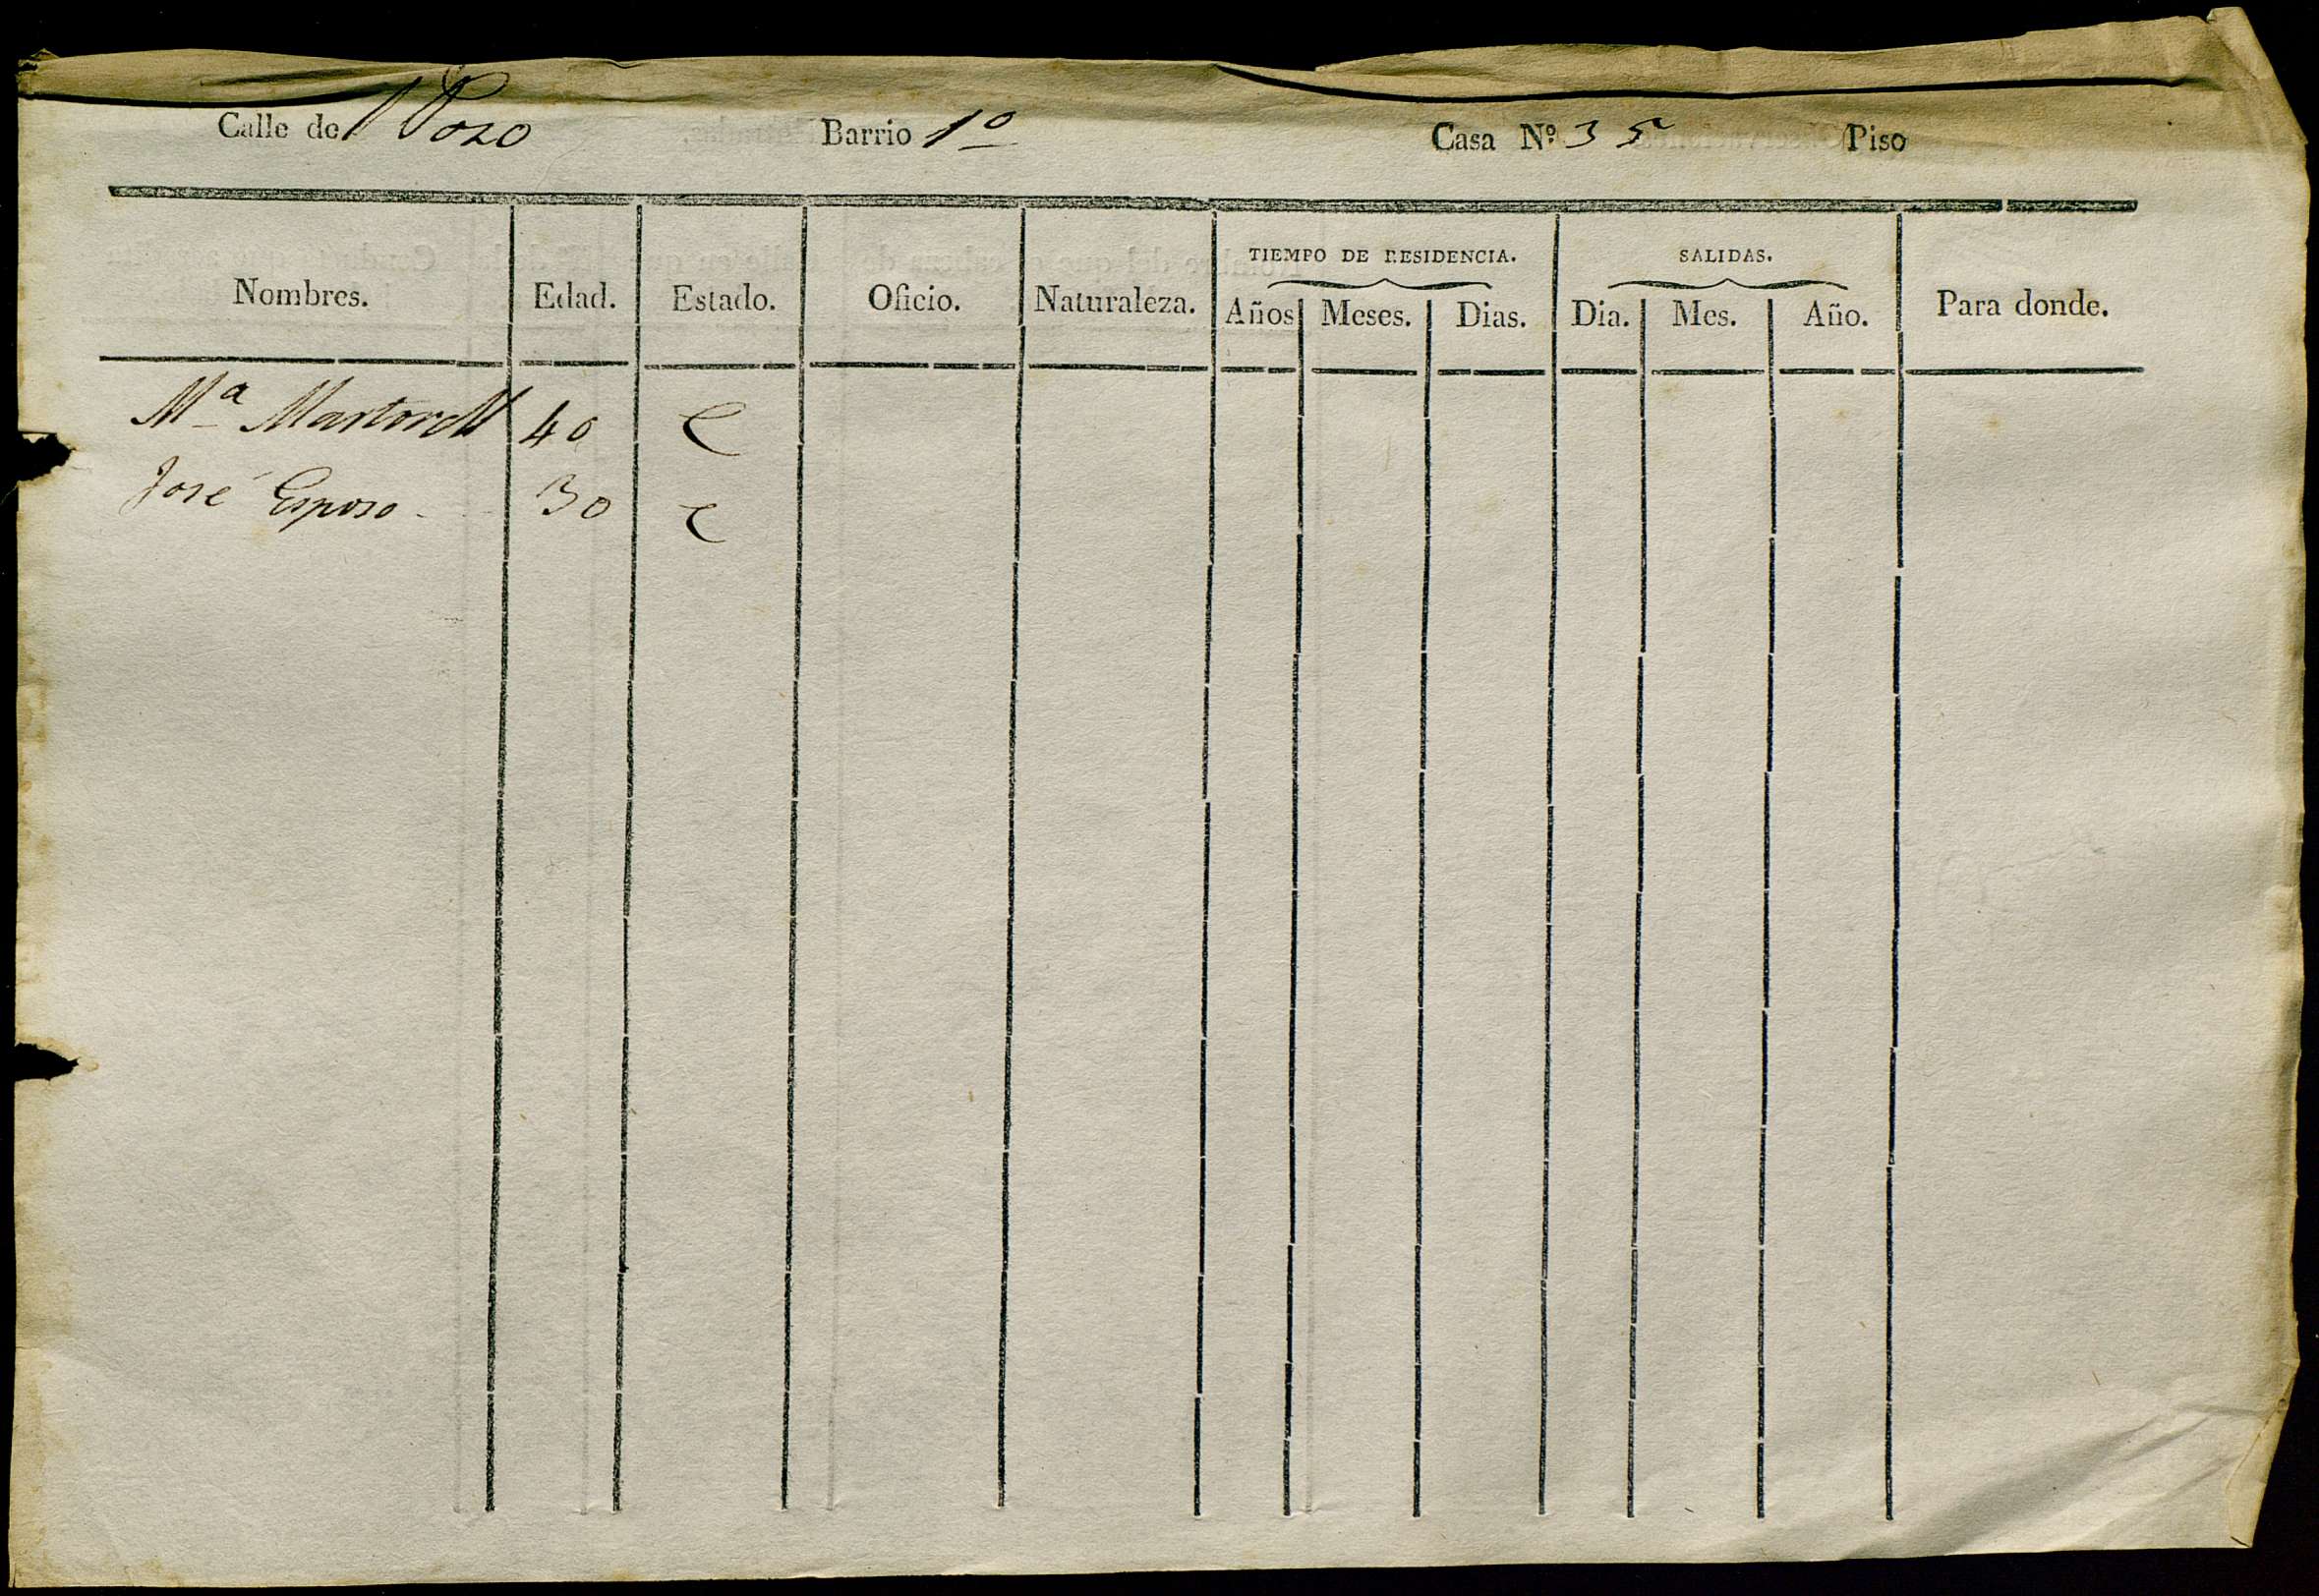 Calle del Pozo Barrio 1º Casa Nº 35 Piso
TIEMPO DE RESIDENCIA. SALIDAS.
Nombres. Edad. Estado. Oficio. Naturaleza. Años Meses. Dias. Dia. Mes. Año. Para donde.
Mª Martorell 40 C
José Esposo 30 C